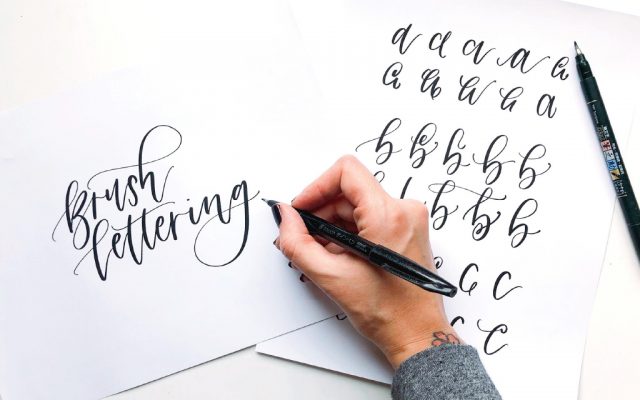 Brush
lettering
a a a a a
a a a a a a
b b b b b
b b b b b
c c c
c c